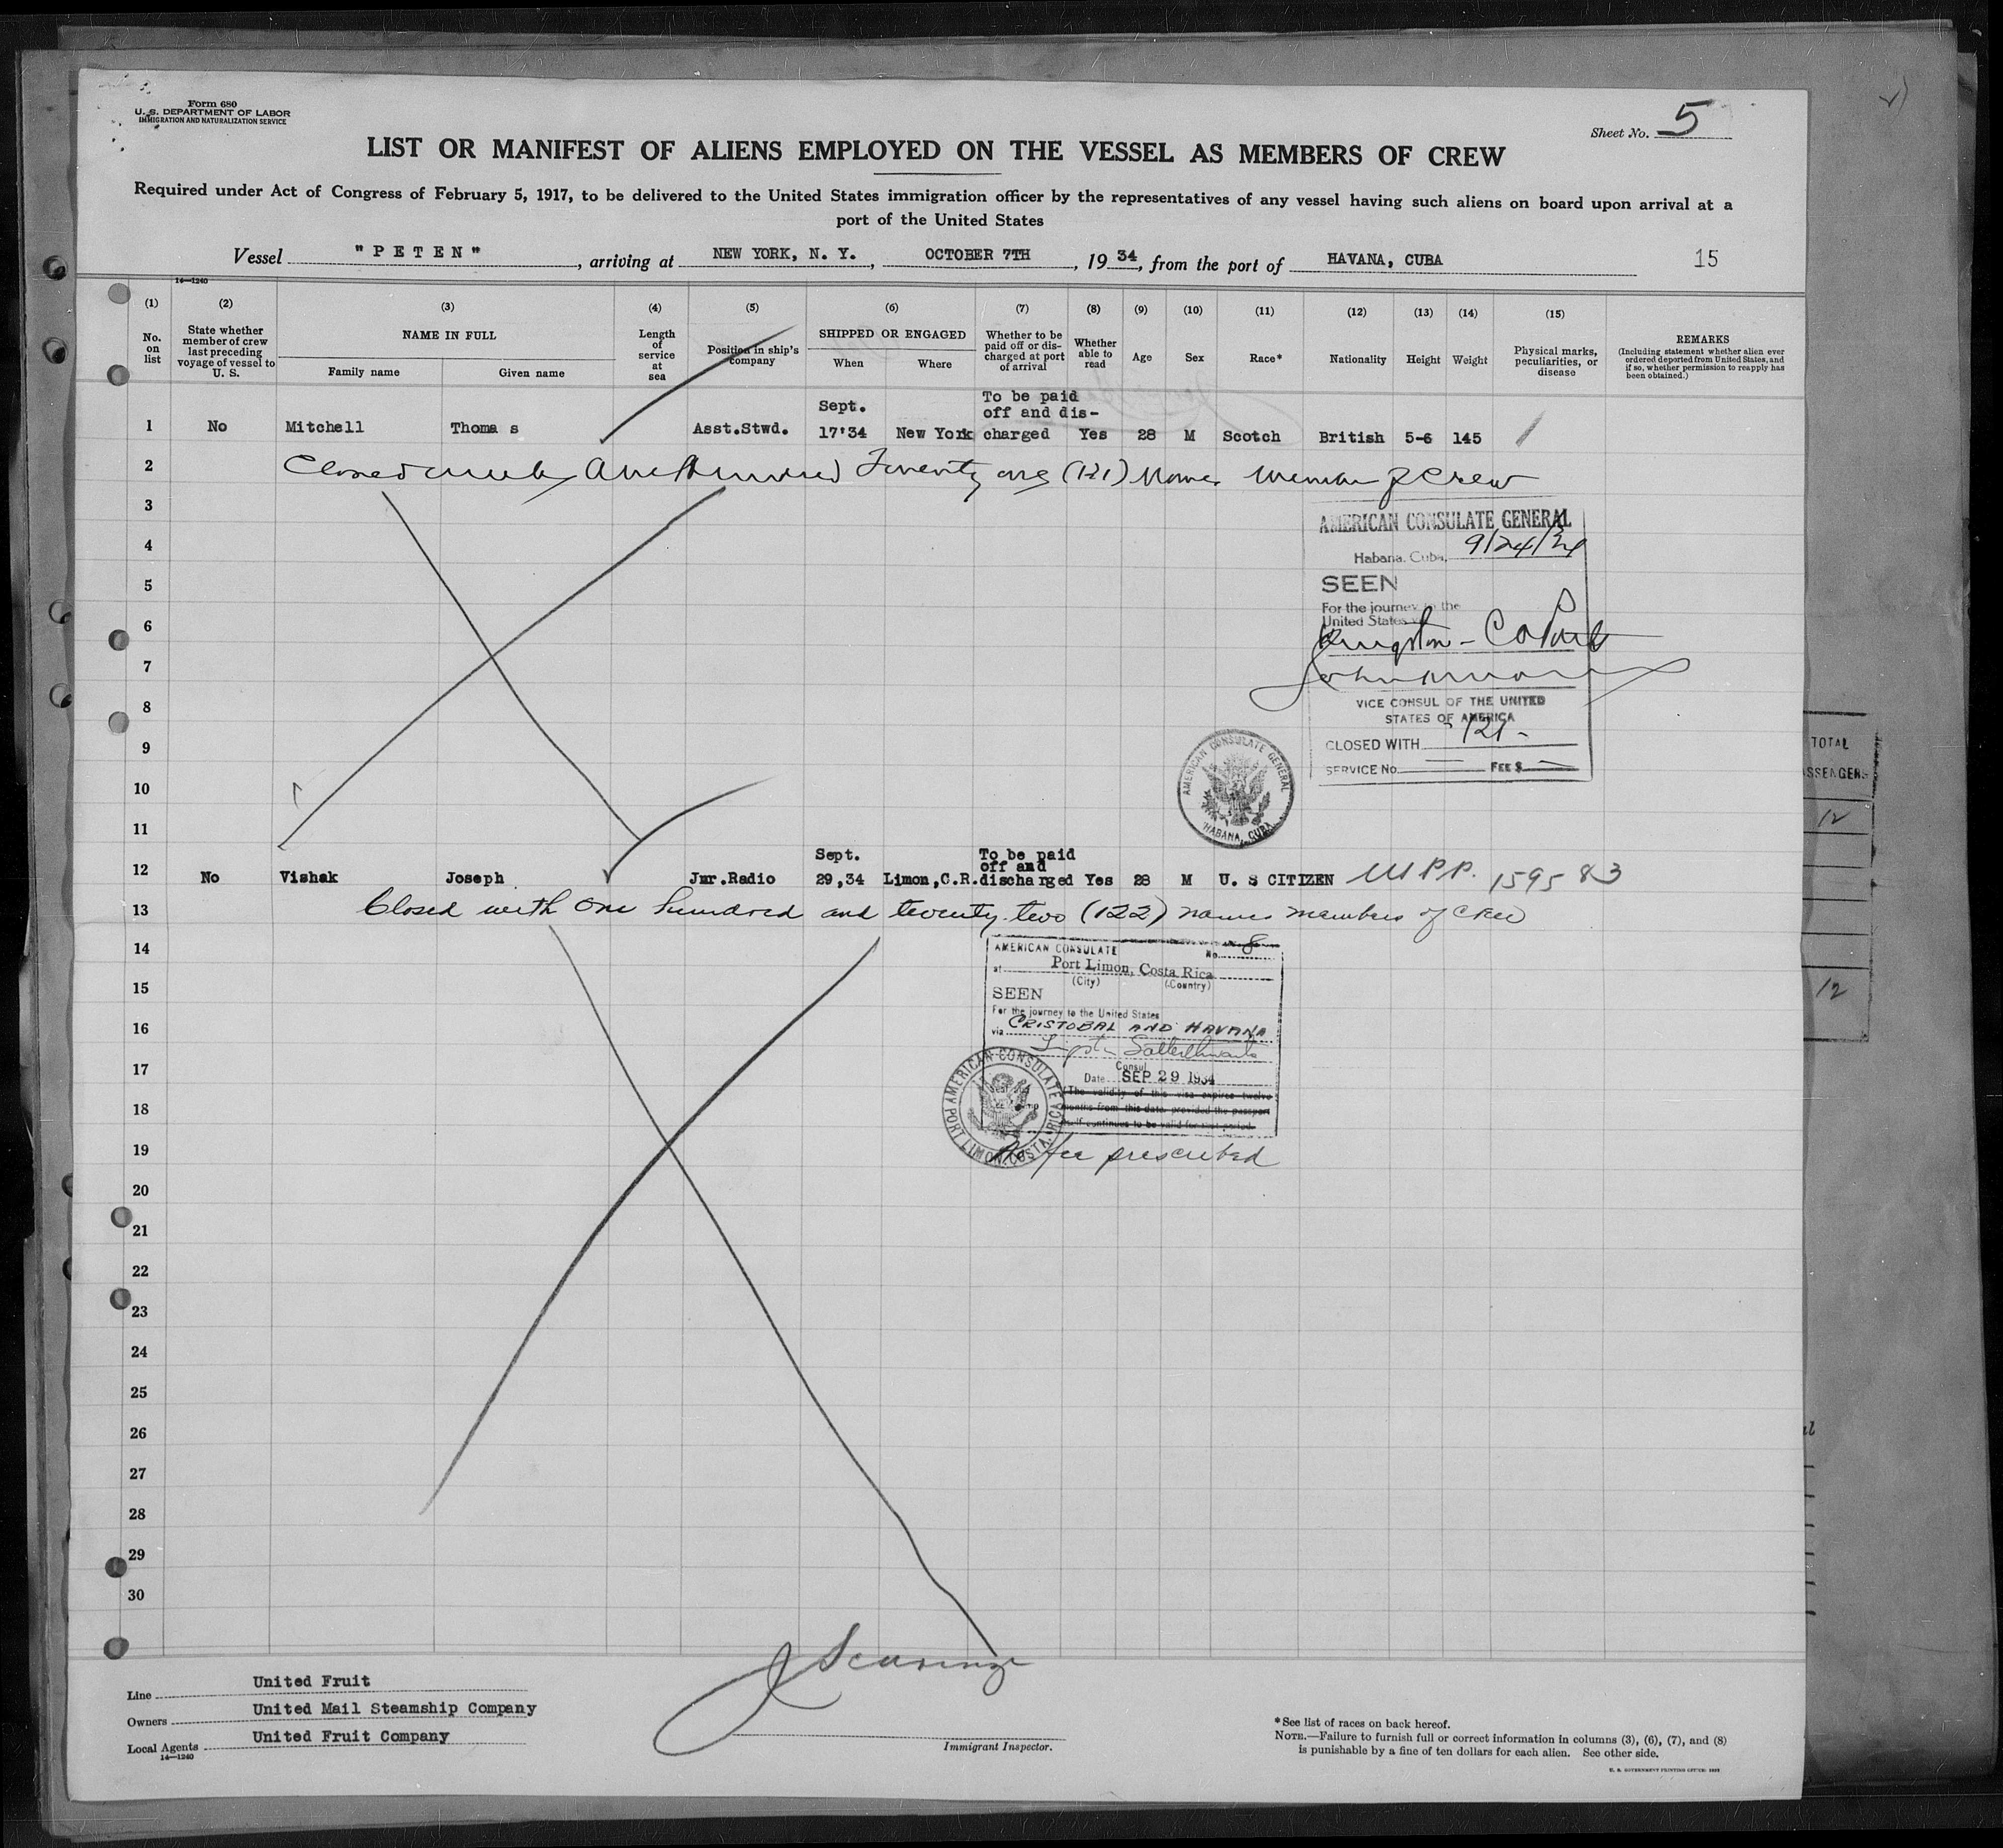 Form 680
U. S. DEPARTMENT OF LABOR
IMMIGRATION AND NATURALIZATION SERVICE
Sheet No. 5
LIST OR MANIFEST OF ALIENS EMPLOYED ON THE VESSEL AS MEMBERS OF CREW
Required under Act of Congress of February 5, 1917, to be delivered to the United States immigration officer by the representatives of any vessel having such aliens on board upon arrival at a
port of the United States
Vessel "PETEN", arriving at NEW YORK, N. Y., OCTOBER 7TH, 1934, from the port of HAVANA, CUBA 15
14-1240
(1) (2) (3) (4) (5) (6) (7) (8) (9) (10) (11) (12) (13) (14) (15)
No. on list
State whether member of crew last preceding voyage of vessel to U. S.
NAME IN FULL
Family name
Given name
Length of service at sea
Position in ship's company
SHIPPED OR ENGAGED
When
Where
Whether to be paid off or discharged at port of arrival
Whether able to read
Age
Sex
Race*
Nationality
Height
Weight
Physical marks, peculiarities, or disease
REMARKS
(Including statement whether alien ever ordered deported from United States, and if so, whether permission to reapply has been obtained.)
1 No Mitchell Thomas Asst.Stwd. Sept. 17'34 New York To be paid off and discharged Yes 28 M Scotch British 5-6 145
2 Closed with One Hundred Twenty one (121) Names Members of Crew
3
AMERICAN CONSULATE GENERAL
4
Habana, Cuba, 9/24/34
5
SEEN
For the journey to the
United States
6
Kingston -
7
8
VICE CONSUL OF THE UNITED
STATES OF AMERICA
9
CLOSED WITH 121-
SERVICE No. FEE $
AMERICAN CONSULATE GENERAL
HABANA, CUBA
10
11
12 No Vishak Joseph Jnr.Radio Sept. 29,34 Limon,C.R. To be paid off and discharged Yes 28 M U. S CITIZEN 159583
13 Closed with one hundred and twenty two (122) names members of crew
14
AMERICAN CONSULATE No. 8
at Port Limon, Costa Rica
(City) (Country)
15
SEEN
For the journey to the United States
16
via CRISTOBAL AND HAVANA
17
Consul
Date SEP 29 1934
The validity of this visa expires twelve
18
months from this date provided the passport
itself continues to be valid for that period.
AMERICAN CONSULATE
PORT LIMON, COSTA RICA
19
No fee prescribed
20
21
22
23
24
25
26
27
28
29
30
Line United Fruit
Owners United Mail Steamship Company
Local Agents United Fruit Company
14-1240
Immigrant Inspector.
*See list of races on back hereof.
NOTE.—Failure to furnish full or correct information in columns (3), (6), (7), and (8)
is punishable by a fine of ten dollars for each alien. See other side.
U. S. GOVERNMENT PRINTING OFFICE:
TOTAL
12
12